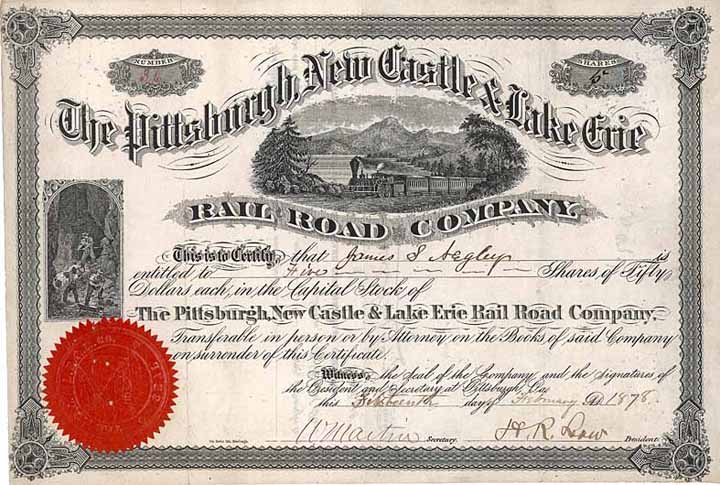 NUMBER
SHARES
The Pittsburgh, New Castle & Lake Erie
RAIL ROAD COMPANY.
This is to Certify, that James S Negley is
entitled to Five Shares of Fifty
Dollars each, in the Capital Stock of
The Pittsburgh, New Castle & Lake Erie Rail Road Company,
Transferable in person or by Attorney on the Books of said Company
on surrender of this Certificate.
Witness, the Seal of the Company and the signatures of
the President and Secretary at Pittsburgh, Pa
this day of February AD 1878.
W Martin Secretary. President.